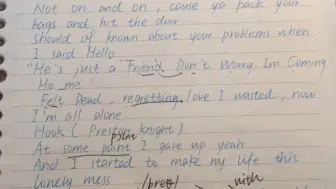 Not on and on, cause ya pack your
bags and hit the door
Should of known about your problems when
I said Hello
"He's just a Friend Don't Worry Im Coming
Ho me"
Felt Dead, regretting love I wasted, now
I'm all alone
Hook (Preston knight)
At some point I gave up yeah
point
And I started to make my life this
lonely mess
with